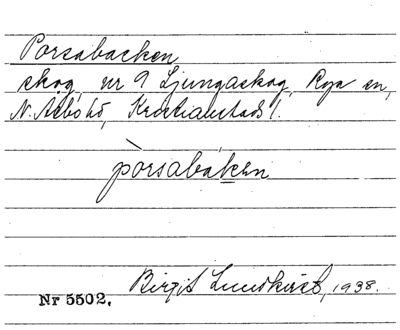 Porsabacken
skog, nr 9 Ljungaskog, Röya sn,
N. Åsbo hd, Kristianstads l.
pòrsabáken
Birgit Lundkvist, 1938.
Nr 5502.